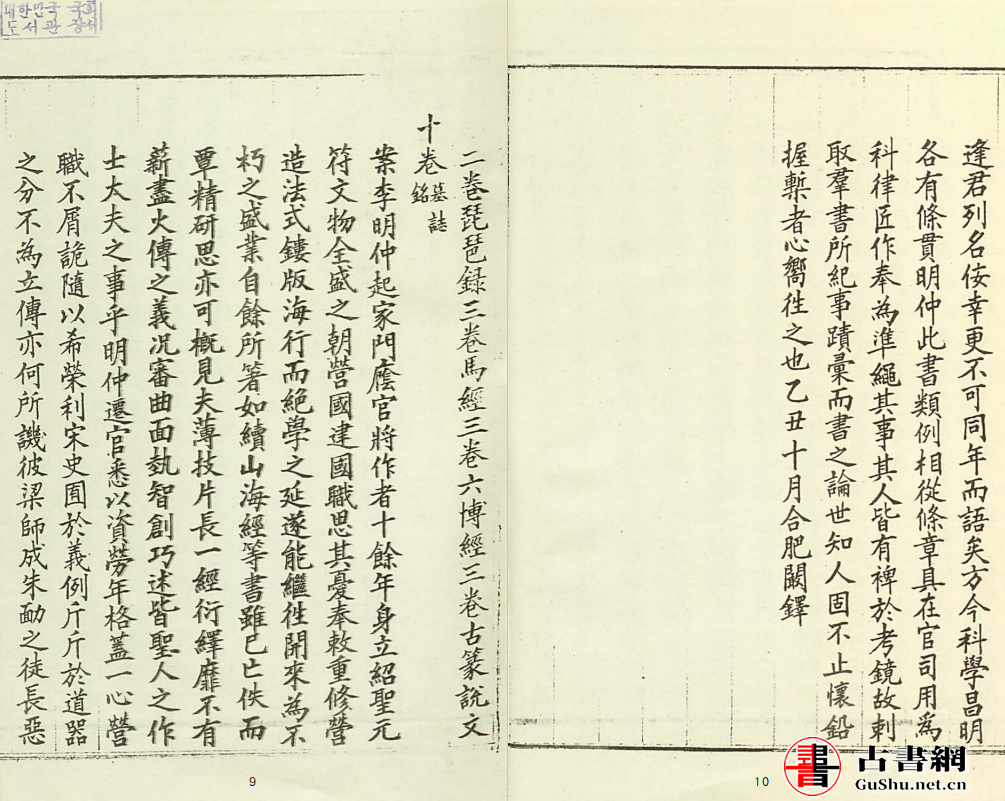 대한민국 국회
도서관 장서
二卷琵琶録三卷馬經三卷六博經三卷古篆說文
十卷墓誌銘
案李明仲起家門廕官將作者十餘年身立紹聖元
符文物全盛之朝營國建國職思其憂奉敕重修營
造法式鏤版海行而絕學之延遂能繼徃開來為不
朽之盛業自餘所著如續山海經等書雖已亡佚而
覃精研思亦可概見夫薄技片長一經衍繹靡不有
薪盡火傳之義況審曲面埶智創巧述皆聖人之作
士大夫之事乎明仲遷官悉以資勞年格蓋一心營
職不屑詭隨以希榮利宋史囿於義例斤斤於道器
之分不為立傳亦何所譏彼梁師成朱勔之徒長惡
9
逢君列名佞幸更不可同年而語矣方今科學昌明
各有條貫明仲此書類例相從條章具在官司用為
科律匠作奉為準繩其事其人皆有裨於考鏡故刺
取羣書所紀事蹟彙而書之論世知人固不止懷鉛
握槧者心嚮徃之也乙丑十月合肥闞鐸
10
書 古書網
GuShu.net.cn